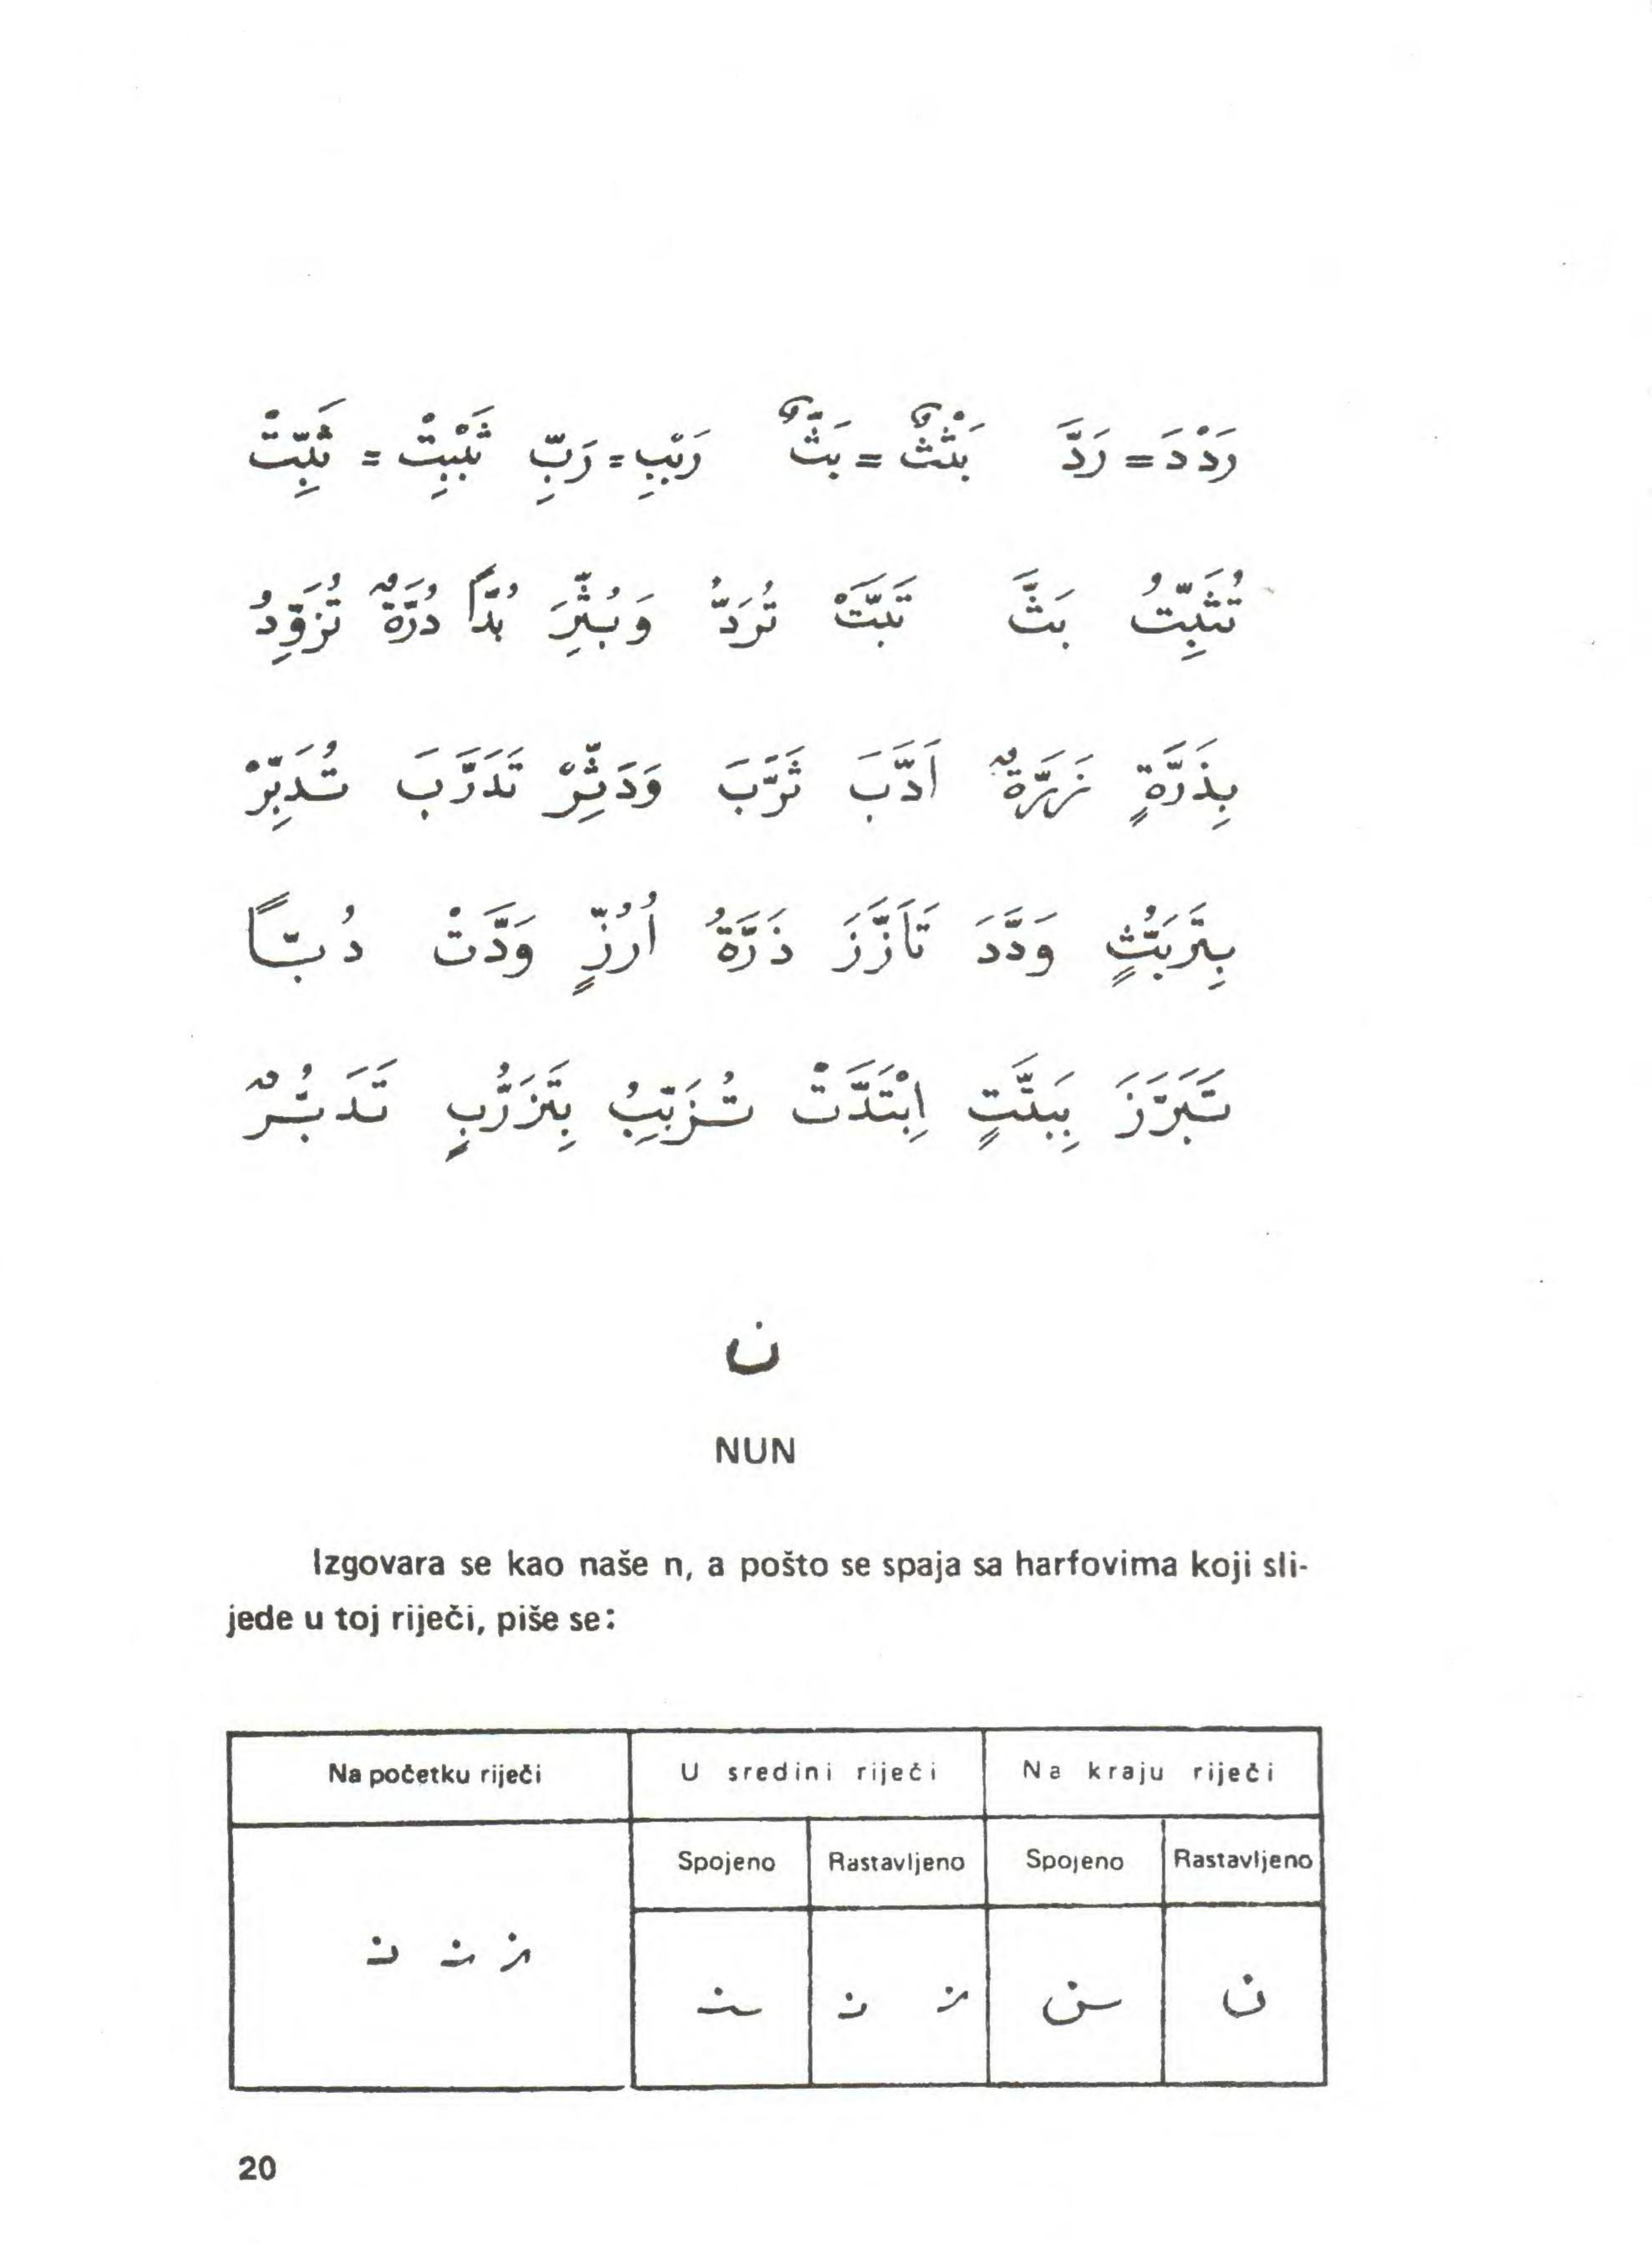 رَدْدَ = رَدَّ بَثْثٌ = بَثٌّ رَبْبِ = رَبِّ ثَبْبِتْ = ثَبِّتْ
تُثَبِّتُ بَثَّ تَبَّتْ تُرَدُّ وَبُثِّرَ بُدًّا دُرَّةٌ تُزَوِّدُ
بِذَرَّةٍ اَدَّبَ ثَرَّبَ وَدَثِّرْ تَدَرَّبَ تُدَبِّرْ
وَدَّدَ تَأَزَّزَ ذَرَّةُ اُرُزٍّ وَدَّتْ دُبًّا
تَبَرَّزَ بِبَتَّتٍ اِبْتَدَّتْ تُزَبِّبُ بِتَزَرُّبٍ تَدَبُّرٌ
ن
NUN
Izgovara se kao naše n, a pošto se spaja sa harfovima koji sli-
jede u toj riječi, piše se:
Na početku riječi U sredini riječi Na kraju riječi
Spojeno Rastavljeno Spojeno Rastavljeno
نـ نـ نـ
ـنـ نـ نـ ـن ن
20